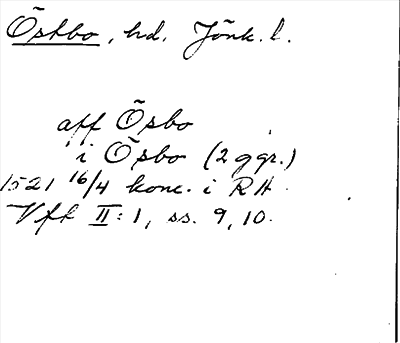 Östbo, hd. Jönk. l.
aff Ösbo
i Ösbo (2 ggr.)
1521 16/4 konc. i RA.
Vfk II:1, ss. 9, 10.